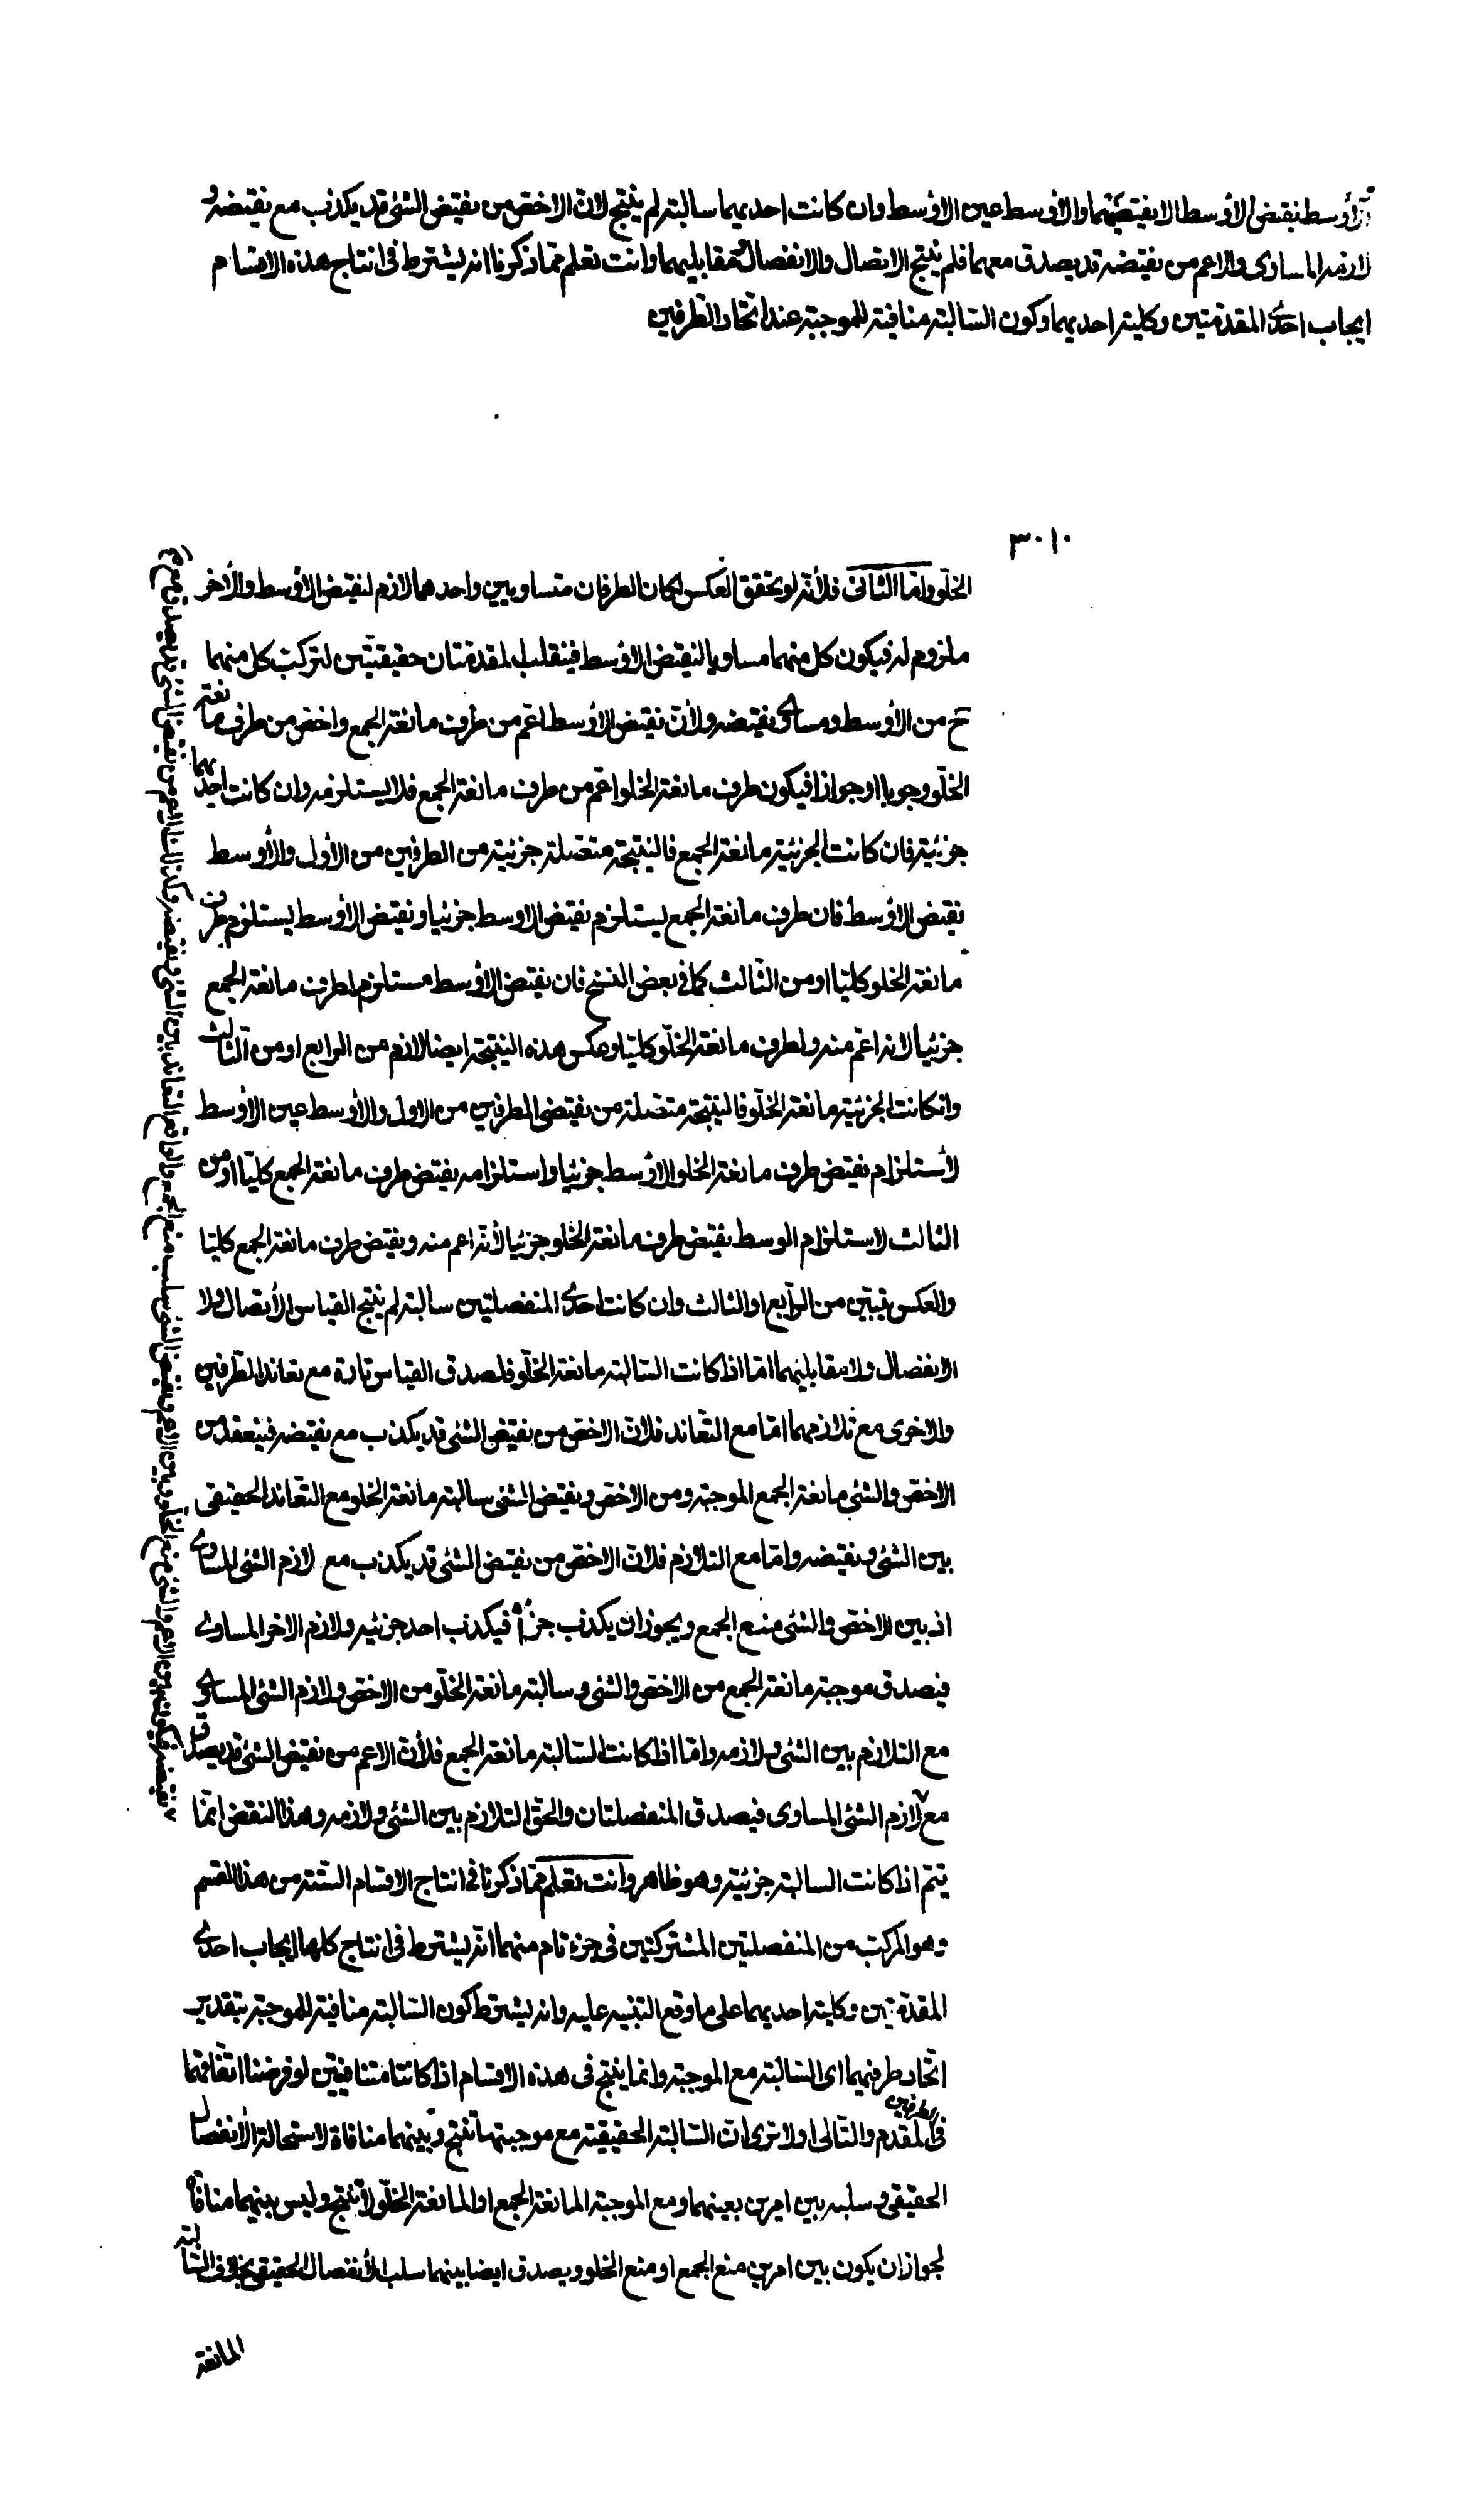 والأوسط نقيض الأوسط لا نقيضيهما والأوسط عين الأوسط وان كانت احديهما سالبة لم ينتج لان الاخص من نقيض الشئ قد يكذب مع نقيضه و
لازمه المساوى والاعم من نقيضه قد يصدق معهما فلم ينتج الاتصال والانفصال ومقابليهما وانت تعلم مما ذكرنا انه يشترط فى انتاج هذه الاقسام
ايجاب احدى المقدمتين وكلية احديهما وكون السالبة منافية للموجبة عند اتحاد الطرفين
٣٠١٠
الخلو واما الثانى فلأنه لو تحقق العكس لكان الطرفان متساويين واحدهما لازم لنقيض الأوسط والأخر
ملزوم له فيكون كل منهما مساويا لنقيض الأوسط فينقلب المقدمتان حقيقيتين لتركب كل منهما
ح من الأوسط ومساوى نقيضه ولأن نقيض الأوسط اعم من طرف مانعة الجمع واخص من طرف مانعة
الخلو وجوبا او جوازا فيكون طرف مانعة الخلو اعم من طرف مانعة الجمع فلا يستلزمه وان كانت احديهما
جزئية فان كانت الجزئية مانعة الجمع فالنتيجة متصلة جزئية من الطرفين من الأول والأوسط
نقيض الأوسط فان طرف مانعة الجمع يستلزم نقيض الاوسط جزئيا ونقيض الأوسط يستلزم طرف
مانعة الخلو كليا او من الثالث كما فى بعض النسخ فان نقيض الأوسط مستلزم لطرف مانعة الجمع
جزئيا لانه اعم منه ولطرف مانعة الخلو كليا وعكس هذه النتيجة ايضا لازم من الرابع او من الثالث
وانكانت الجزئية مانعة الخلو فالنتيجة متصلة من نقيضى الطرفين من الاول والأوسط عين الأوسط
لأستلزام نقيض طرف مانعة الخلو الاوسط جزئيا واستلزامه نقيض طرف مانعة الجمع كليا او من
الثالث لاستلزام الوسط نقيض طرف مانعة الخلو جزئيا لأنه اعم منه ونقيض طرف مانعة الجمع كليا
والعكس يتبين من الرابع او الثالث وان كانت احدى المنفصلتين سالبة لم ينتج القياس الأتصال ولا
الانفصال ولا مقابليهما اما اذا كانت السالبة مانعة الخلو فلصدق القياس تارة مع تعاند الطرفين
والاخرى مع تلازمهما اما مع التعاند فلان الاخص من نقيض الشئ قد يكذب مع نقيضه فينعقد من
الاخص والشئ مانعة الجمع الموجبة ومن الاخص ونقيض الشئ سالبة مانعة الخلو مع التعاند الحقيقى
بين الشئ ونقيضه واما مع التلازم فلان الاخص من نقيض الشئ قد يكذب مع لازم الشئ المساوى
اذ بين الاخص والشئ منع الجمع ويجوز ان يكذب جزءاه فيكذب احد جزئيه ولازم الاخر المساوى
فيصدق موجبة مانعة الجمع من الاخص والشئ وسالبة مانعة الخلو من الاخص ولازم الشئ المساوى
مع التلازم بين الشئ ولازمه واما اذا كانت السالبة مانعة الجمع فلأن الاعم من نقيض الشئ قد يصدق
مع لازم الشئ المساوى فيصدق المنفصلتان والحق التلازم بين الشئ ولازمه وهذا النقض انما
يتم اذا كانت السالبة جزئية وهو ظاهر وانت تعلم مما ذكرنا فى انتاج الاقسام الستة من هذا القسم
وهو المركب من المنفصلتين المشتركتين فى جزء تام منهما انه يشترط فى انتاج كلها ايجاب احدى
المقدمتين وكلية احديهما على ما وقع التنبيه عليه وانه يشترط كون السالبة منافية للموجبة بتقدير
اتحاد طرفيهما اى السالبة مع الموجبة وانما ينتج فى هذه الاقسام اذا كانتا متنافيتين لو فرضنا اتفاقهما
فى الطرفين المقدم والتالى اولا ترى ان السالبة الحقيقية مع موجبتها تنتج وبينهما منافاة لاستحالة الأنفصال
الحقيقى وسلبه بين امرين بعينهما ومع الموجبة المانعة الجمع او المانعة الخلو لا تنتج وليس بينهما منافاة
لجواز ان يكون بين امرين منع الجمع او منع الخلو ويصدق ايضا بينهما سلب الأنفصال الحقيقى بخلاف السالبة
المانعة